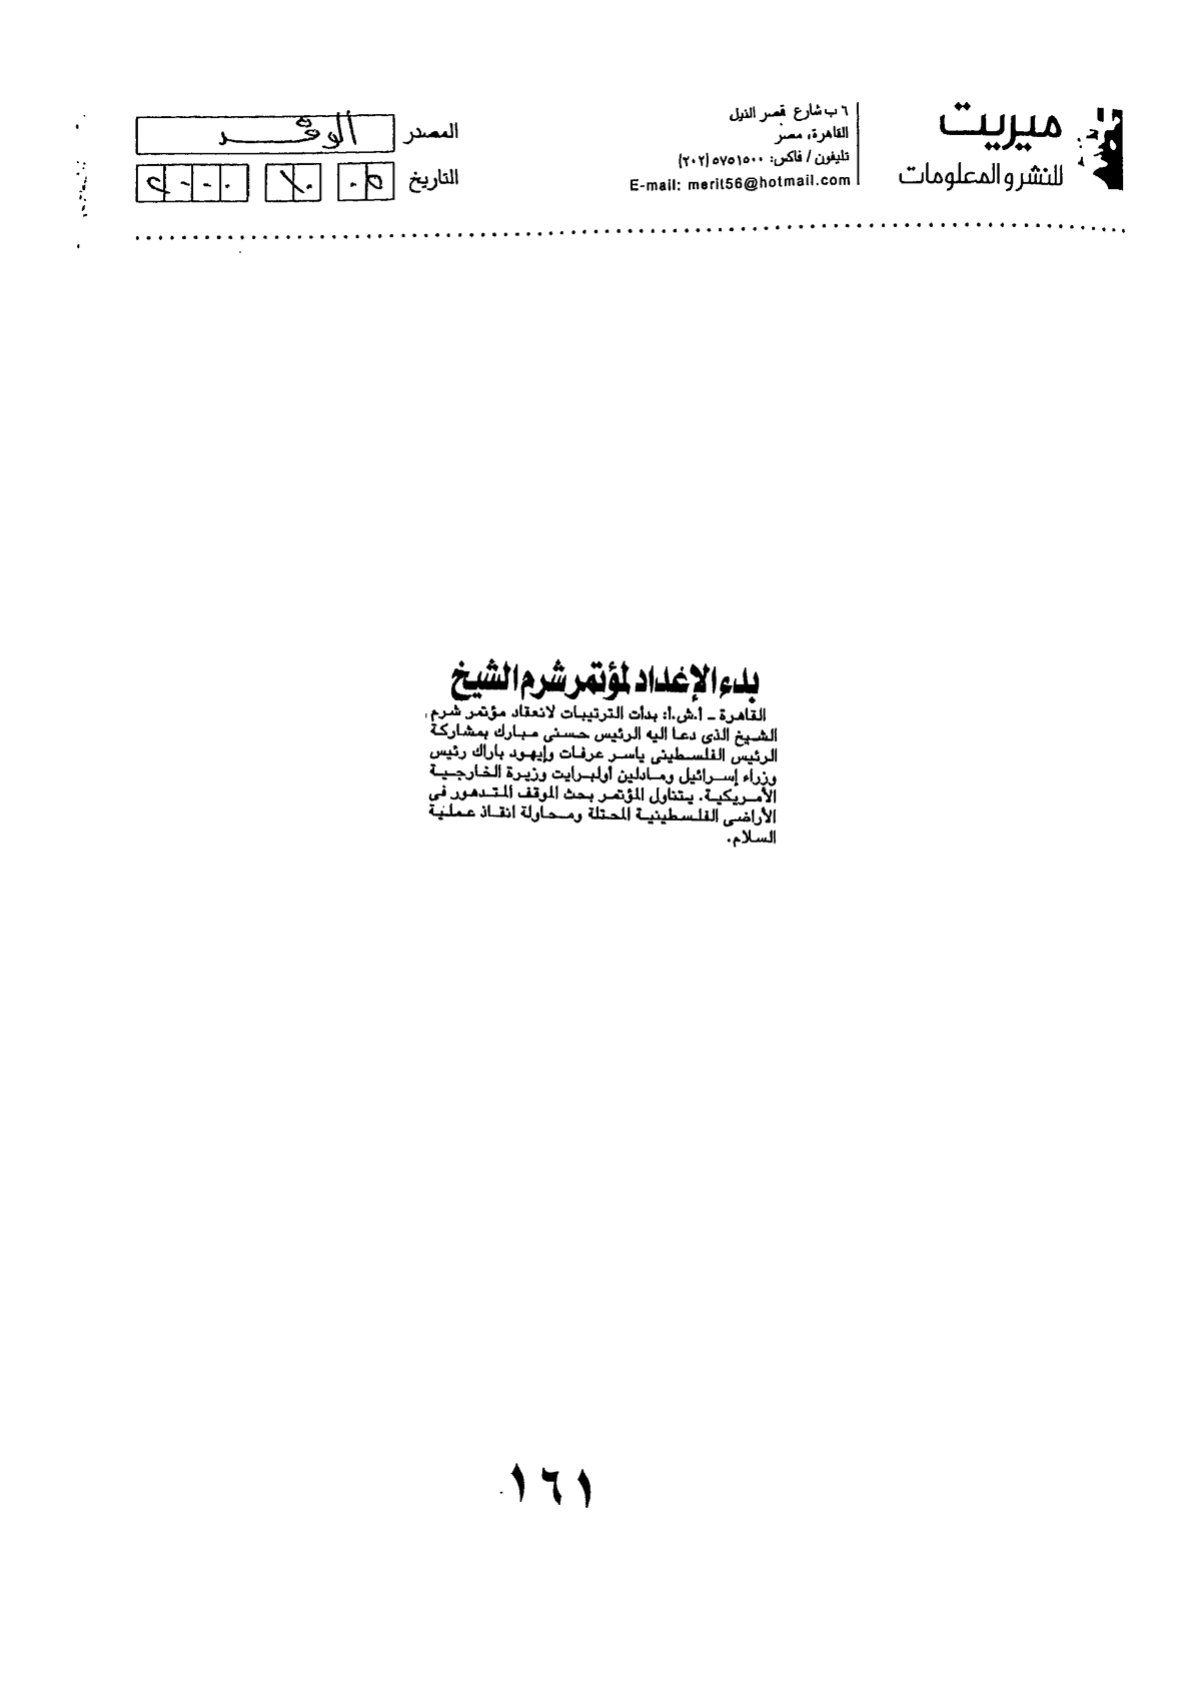 ميريت
للنشر والمعلومات
٦ ب شارع قصر النيل
القاهرة، مصر
تليفون / فاكس: ٥٧٥١٥٠٠ (٢٠٢)
E-mail: merit56@hotmail.com
المصدر الوفد
التاريخ ٠٥ ١٠ ٢٠٠٠
بدء الإعداد لمؤتمر شرم الشيخ
القاهرة ـ أ.ش.أ: بدأت الترتيبات لانعقاد مؤتمر شرم
الشيخ الذى دعا اليه الرئيس حسنى مبارك بمشاركة
الرئيس الفلسطينى ياسر عرفات وإيهود باراك رئيس
وزراء إسرائيل ومادلين أولبرايت وزيرة الخارجية
الأمريكية. يتناول المؤتمر بحث الموقف المتدهور فى
الأراضى الفلسطينية المحتلة ومحاولة انقاذ عملية
السلام.
١٦١